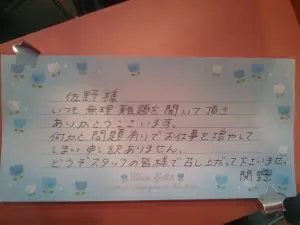 佐野様
いつも無理難題を聞いて頂き
ありがとうございます。
何かと問題有りでお仕事を増やして
しまい申し訳ありません。
どうぞスタッフの皆様で召し上がって下さいませ。
関野